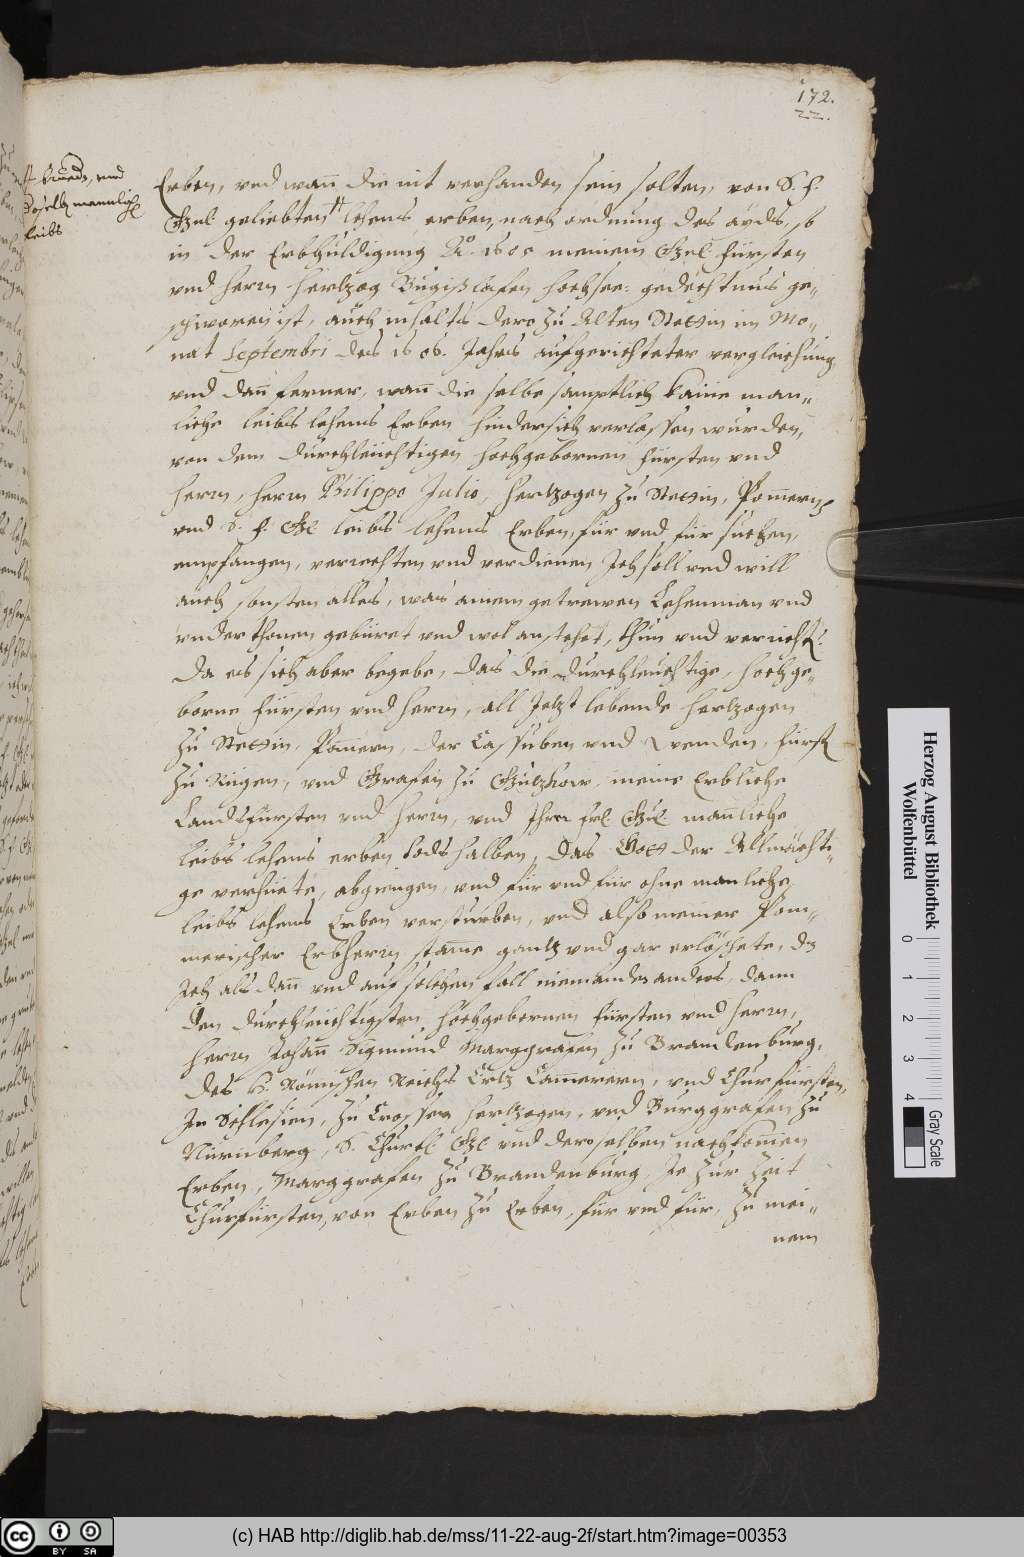 172.
22.
# Brueder, vnd
deroselb mannliche
leibs
Erben, vnd wan̄ die nit verhanden sein solten, von S. F.
Gnl. geliebten # lehens erben, nach ordnung des ayds, so
in der Erbhuldigung Ao. 1605 meinem Gnl. Fürsten
vnd herrn hertzog Bugißlafen hochsee: gedechtnus ge„
schworen ist, auch inhalts dero zu Alten Stettin im Mo„
nat Septembri des 1606. Jahrs aufgerichteter vergleichung
vnd dan̄ ferner, wan̄ die selbe samptlich kaine man„
liche leibs lehens Erben hindersich verlassen würden,
von dem durchleüchtigen hochgebornen fürsten vnd
herrn, herrn Philippo Julio, hertzogen zu Stettin, Pom̄ern
vnd S. F. Gl leibs lehens Erben, für vnd für suchen,
empfangen, verrechten vnd verdienen Jch soll vnd will
auch sonsten alles, was ainem getrewen Lehenman vnd
vnderthonen gebüret vnd wol anstehet, thun vnd verricht.
Da es sich aber begebe, das die durchleuchtige, hochge„
borne fürsten vnd herrn, all Jetzt lebende hertzogen
zu Stettin, Pom̄ern, der Cassuben vnd Wenden, fürst
zu Rügen, vnd Grafen zu Gützkow, meine Erbliche
Landsfürsten vnd herrn, vnd Jhrer frl. Gnl. man̄liche
leibs lehens erben todshalben, das Gott der Allmächti„
ge verhüete, abgiengen, vnd für vnd für ohne manliche
leibs lehens Erben verstürben, vnd also meiner Pom„
merischer Erbherrn stam̄e gantz vnd gar erlöschete, dz
Jch als dan̄ vnd auf solchen fall niemanden anders, dann
den durchleüchtigsten hochgebornen fürsten vnd herrn,
herrn Johan̄ Sigmund Marggrafen zu Brandenburg,
des H. Römischen Reichs Ertz Cam̄erern, vnd Churfürsten,
Jn Schlesien, zu Crossen hertzogen, vnd Burggrafen zu
Nürnberg, S. Churfl. Gl vnd deroselben nachkom̄en
Erben, Marggrafen zu Brandenburg, Je zur Zeit
Churfürsten, von Erben zu Erben, für vnd für, zu mei„
nem
Herzog August Bibliothek
Wolfenbüttel
0 1 2 3 4
Gray Scale
cc BY SA
(c) HAB http://diglib.hab.de/mss/11-22-aug-2f/start.htm?image=00353